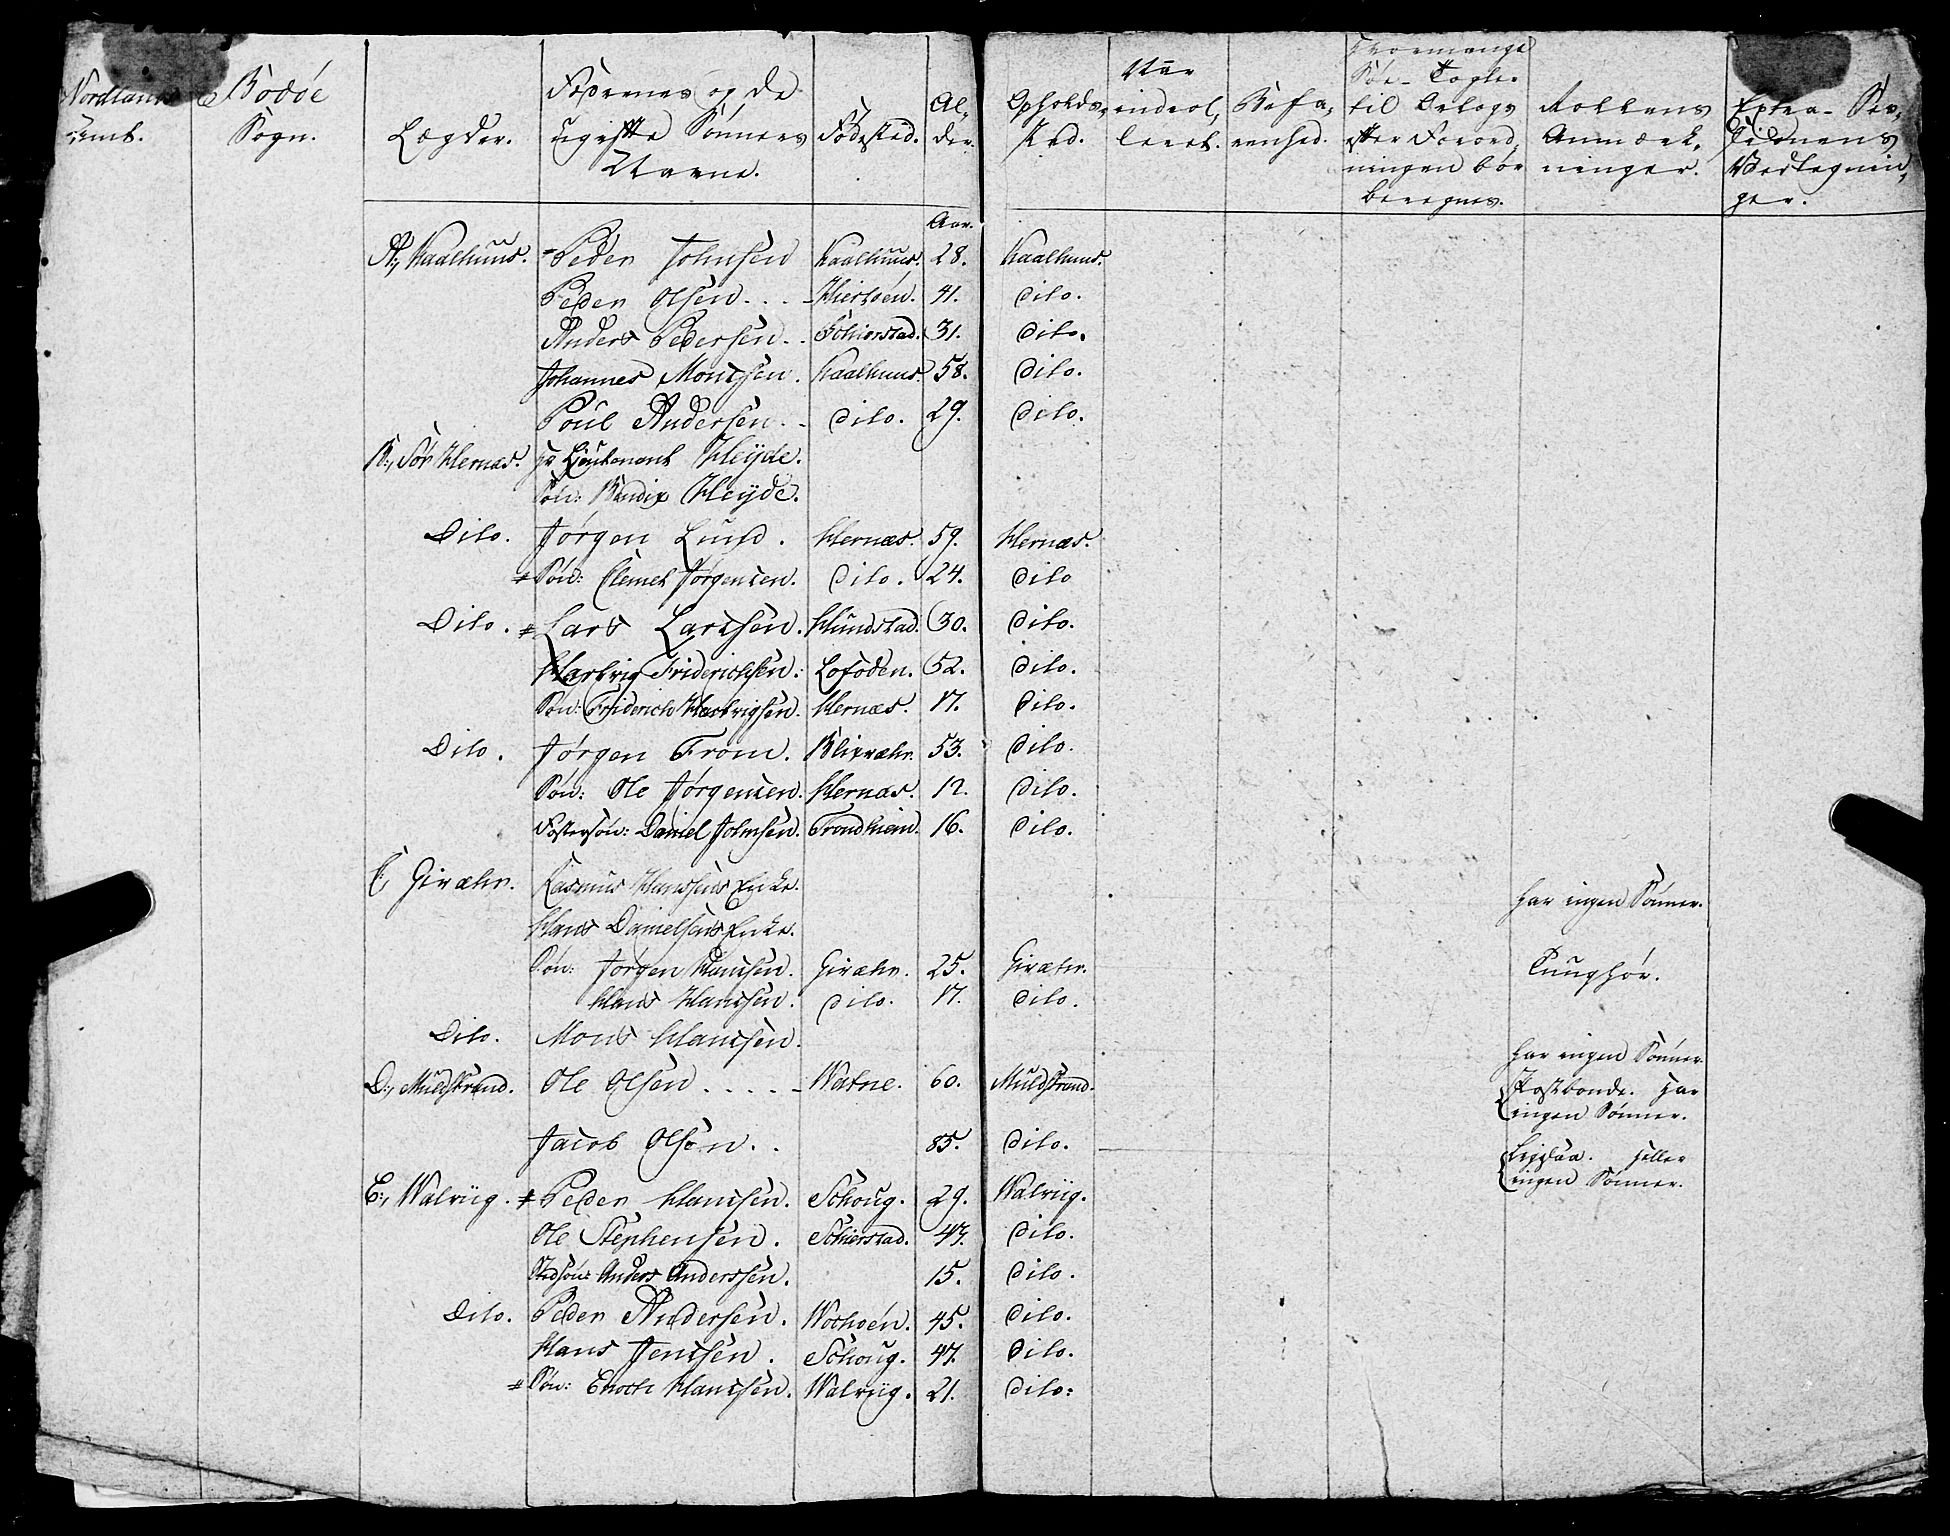 Nordlands Amt. Bodøe Sogn.
Lægder. Fædrenes og de ugifte Sønners Navne. Fødested. Alder. Opholds Sted. Naar indrolleret. Befarenhed. Hvormange Søe-Togter til Orlogs efter Forordningen bør beregnes. Rollens Anmærkninger. Extra-Sessionens Bedtegninger.
Aar.
A., Kaalhuus. Peder Johnsen Kaalhuus. 28. Kaalhuus.
Peder Olsen. . . Hiertøen. 41. dito.
Anders Pedersen. . Schierstad. 31. dito.
Johannes Monssen. Kaalhuus. 58. dito.
Poul Andersen. . dito. 29. dito.
B., Sør Hernæs. Hr Lieutenant Heyde.
Søn: Bendix Heyde.
Dito. Jørgen Lund. Hernæs. 59. Hernæs.
# Søn: Clemet Jørgensen. Dito. 24. dito
Dito. # Lars Larssen. Hundstad. 30. dito.
Hartvig Friderichsen. Lofoden. 52. dito.
Søn: Friderich Hartvigsen. Hernæs. 17. dito.
Dito. Jørgen From. Blixvær. 53. dito.
Søn: Ole Jørgensen. Hernæs. 12. dito.
Fostersøn: Daniel Johnsen. Trondhiem. 16. dito.
C, Givær. Rasmus Hanssens Enke. har ingen Sønner.
Hans Danielsens Enke.
Søn: Jørgen Hanssen. Givær. 25. Givær. Tunghør.
Hans Hanssen. dito. 17. dito.
Dito. Mons Hanssen. har ingen Sønner.
D., Muldstrand. Ole Olsen . . . . . Watne. 60. Muldstrand. Postbonde. har
ingen Sønner.
Jacob Olsen. . 85. dito. Ligesaa. heller
ingen Sønner.
E., Walviig. # Peder Hanssen. Schoug. 29. Walviig.
Ole Stephensen. Schierstad. 47. dito.
Stedsøn: Anders Anderssen. 15. dito.
Dito. Peder Andersen. 45. dito.
Hans Jenssen. Schoug. 47. dito.
# Søn: Enoch Hanssen. Walviig. 21. dito: